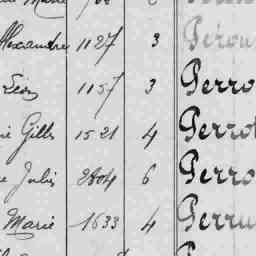 Alexandre 1127 3 Pérou
Léon 1157 3 Perro
Gille 1521 4 Perrot
Julie 2804 6 Perro
Marie 1633 4 Perru